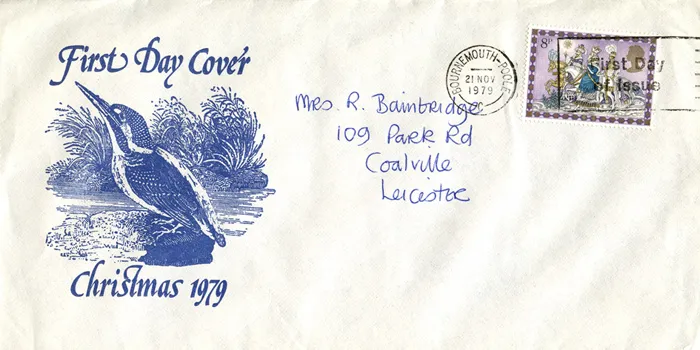 First Day Cover
Christmas 1979
BOURNEMOUTH-POOLE
21 NOV
1979
8p
First Day
of Issue
Mrs. R. Bainbridge
109 Park Rd
Coalville
Leicester